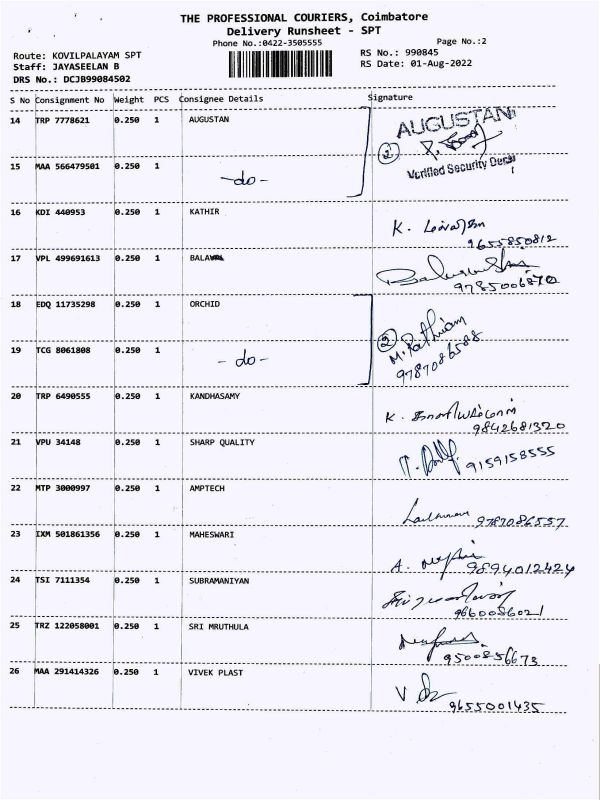 THE PROFESSIONAL COURIERS, Coimbatore
Delivery Runsheet - SPT
Phone No.:0422-3505555 Page No.:2
Route: KOVILPALAYAM SPT RS No.: 990845
Staff: JAYASEELAN B RS Date: 01-Aug-2022
DRS No.: DCJB99084502
S No Consignment No Weight PCS Consignee Details Signature
14 TRP 7778621 0.250 1 AUGUSTAN AUGUSTAN
2
Verified Security Desk
15 MAA 566479501 0.250 1 -do-
16 KDI 440953 0.250 1 KATHIR K.
9655850812
17 VPL 499691613 0.250 1
9785006870
18 EDQ 11735298 0.250 1 ORCHID
2
19 TCG 8061808 0.250 1 -do-
9787086588
20 TRP 6490555 0.250 1 KANDHASAMY K.
9842681320
21 VPU 34148 0.250 1 SHARP QUALITY
9159158555
22 MTP 3000997 0.250 1 AMPTECH
9787086557
23 IXM 501861356 0.250 1 MAHESWARI A.
9894012424
24 TSI 7111354 0.250 1 SUBRAMANIYAN
9860086021
25 TRZ 122058001 0.250 1 SRI MRUTHULA
9500856673
26 MAA 291414326 0.250 1 VIVEK PLAST V
9655001435